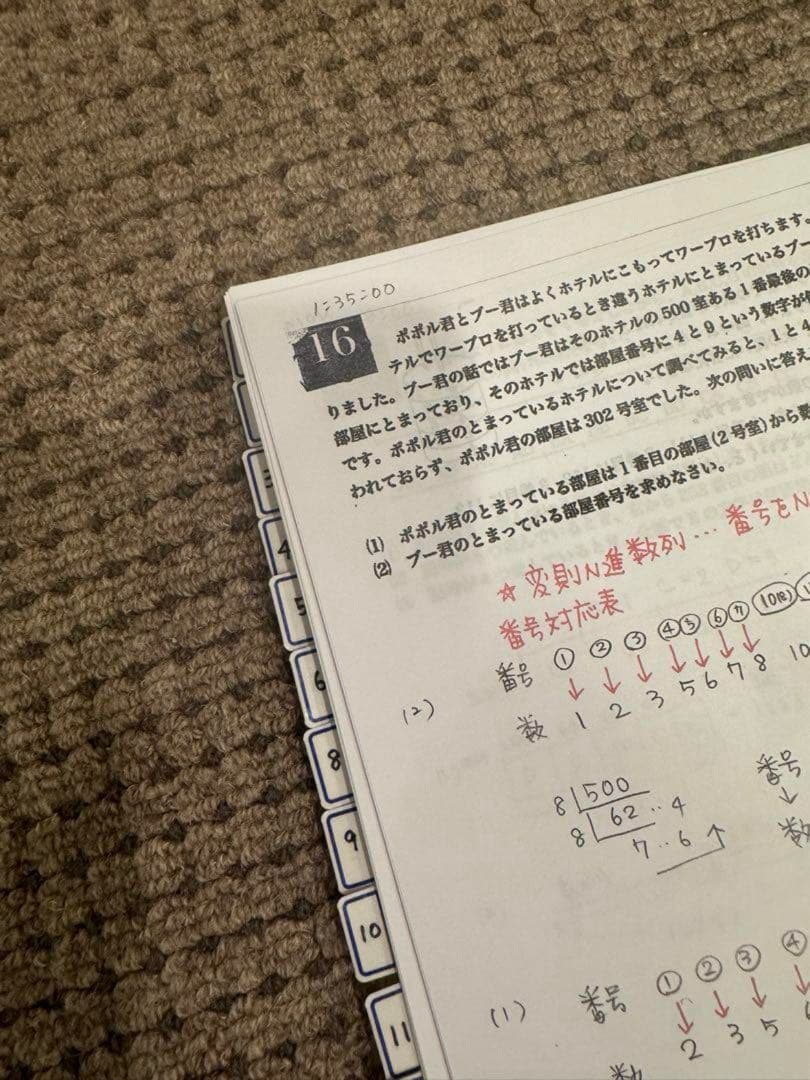 1:35:00
16
ポポル君とプー君はよくホテルにこもってワープロを打ちます。
テルでワープロを打っているとき違うホテルにとまっているプー
りました。プー君の話ではプー君はそのホテルの500室ある1番最後の
部屋にとまっており、そのホテルでは部屋番号に4と9という数字が
です。ポポル君のとまっているホテルについて調べてみると、1と4
われておらず、ポポル君の部屋は302号室でした。次の問いに答え
(1) ポポル君のとまっている部屋は1番目の部屋(2号室)から
(2) プー君のとまっている部屋番号を求めなさい。
☆変則N進数列… 番号をN
番号対応表
(2) 番号 ① ② ③ ④ ⑤ ⑥ ⑦ 10(8)
↓ ↓ ↓ ↓ ↓ ↓ ↓
数 1 2 3 5 6 7 8 10
8 500 番号
8 62‥4 ↓
7‥6 ↑ 数
(1) 番号 ① ② ③ ④
↓ ↓ ↓ ↓
数 2 3 5
3
4
5
6
8
9
10
11